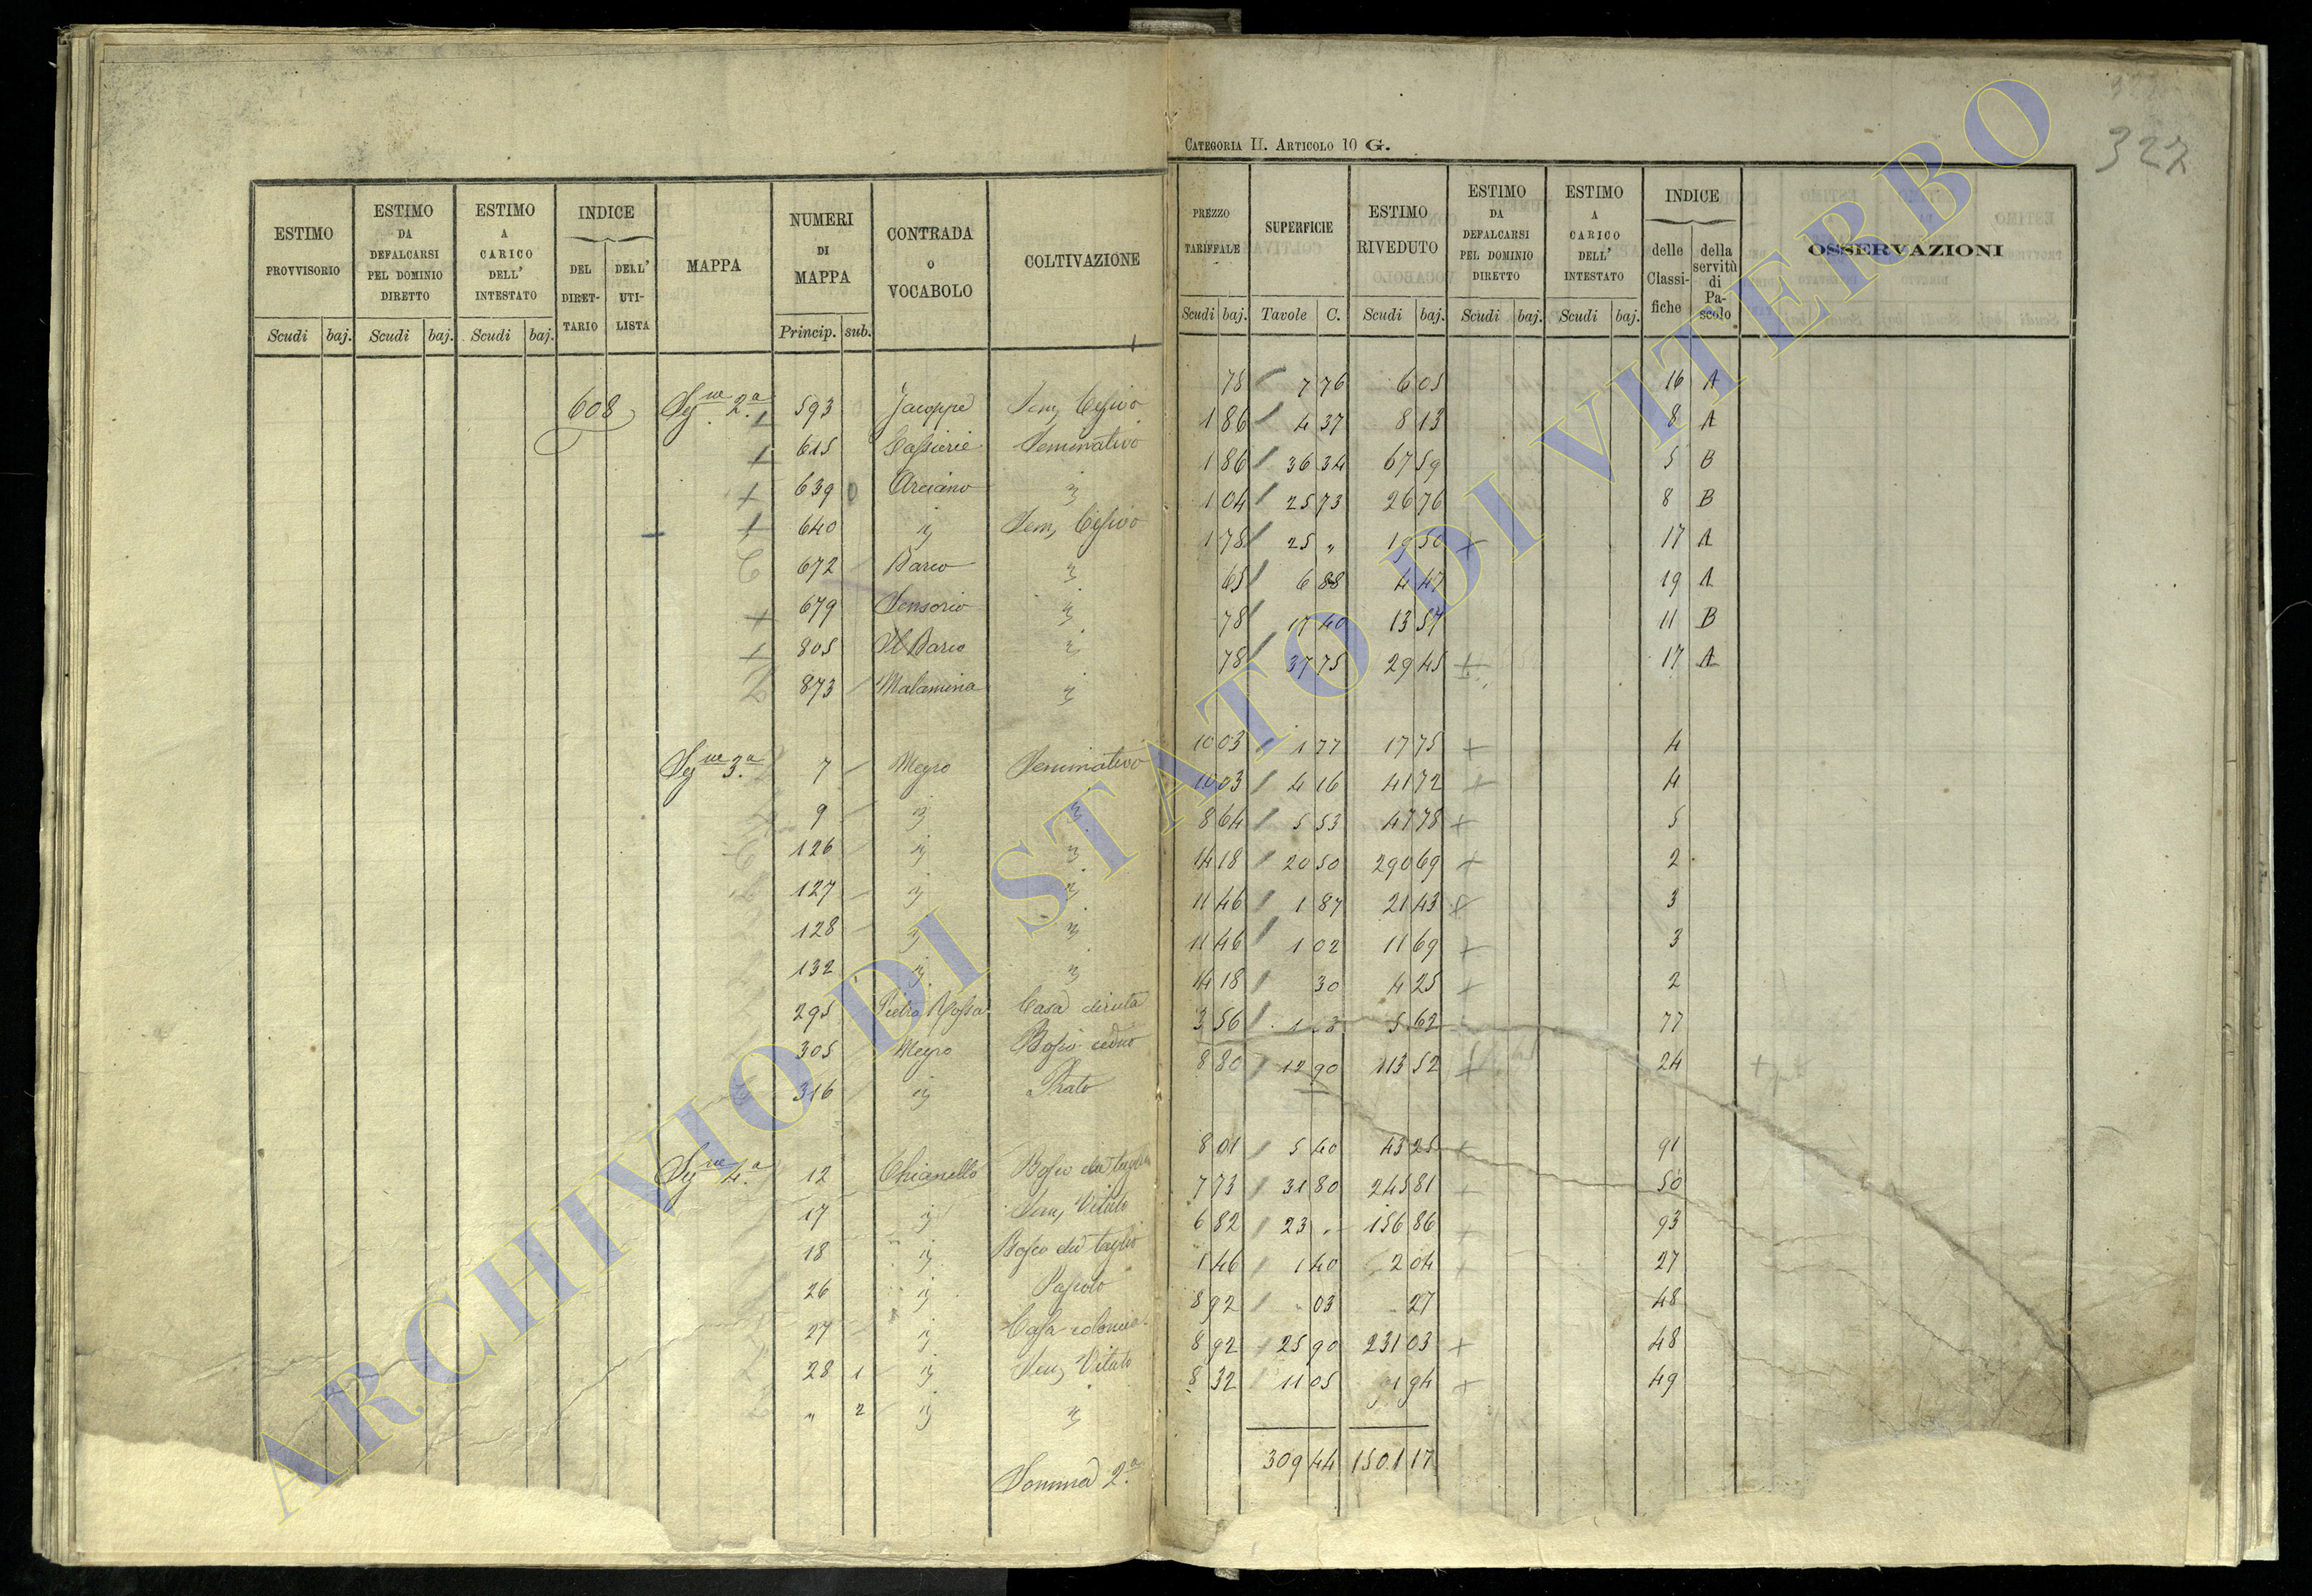 322
327
CATEGORIA II. ARTICOLO 10 G.
ESTIMO PROVVISORIO Scudi baj.
ESTIMO DA DEFALCARSI PEL DOMINIO DIRETTO Scudi baj.
ESTIMO A CARICO DELL' INTESTATO Scudi baj.
INDICE DEL DIRETTARIO DELL' UTILISTA
MAPPA
NUMERI DI MAPPA Princip. sub.
CONTRADA O VOCABOLO
COLTIVAZIONE
PREZZO TARIFFALE Scudi baj.
SUPERFICIE Tavole C.
ESTIMO RIVEDUTO Scudi baj.
ESTIMO DA DEFALCARSI PEL DOMINIO DIRETTO Scudi baj.
ESTIMO A CARICO DELL' INTESTATO Scudi baj.
INDICE delle Classifiche della servitù di Pascolo
OSSERVAZIONI
608 Sgne 2a 593 Jacoppe Sem, Cesivo 78 7 76 6 05 16 A
615 Cassierie Seminativo 1 86 4 37 8 13 8 A
639 0 Arciano " 1 86 36 34 67 59 5 B
640 " Sem, Cesivo 1 04 25 73 26 76 8 B
672 Barco " 1 78 25 " 19 50 + 17 A
679 Sensorio " 65 6 88 4 47 19 A
805 Il Barco " 78 17 40 13 57 11 B
873 Malamina " 78 37 75 29 45 + 17 A
Sgne 3a 7 Megro Seminativo 10 03 1 77 17 75 + 4
9 " " 10 03 4 16 41 72 + 4
126 " " 8 64 5 53 47 78 + 5
127 " " 14 18 20 50 290 69 + 2
128 " " 11 46 1 87 21 43 + 3
132 " " 11 46 1 02 11 69 + 3
295 Pietra Rossa Casa diruta 14 18 30 4 25 + 2
305 Megro Bosco ceduo 3 56 5 62 77
316 " Prato 8 80 12 90 113 52 + 24
Sgne 4a 12 Chianello Bosco da taglio 8 01 5 40 43 25 + 91
17 " Sem, Vitato 7 73 31 80 245 81 + 50
18 " Bosco da taglio 6 82 23 " 156 86 + 93
26 " Pascolo 1 46 1 40 2 04 + 27
27 " Casa colonica 8 92 " 03 " 27 48
28 1 " Sem, Vitato 8 92 25 90 231 03 + 48
" 2 " " 8 32 11 05 94 + 49
Somma 2a 309 44 1501 17
ARCHIVIO DI STATO DI VITERBO